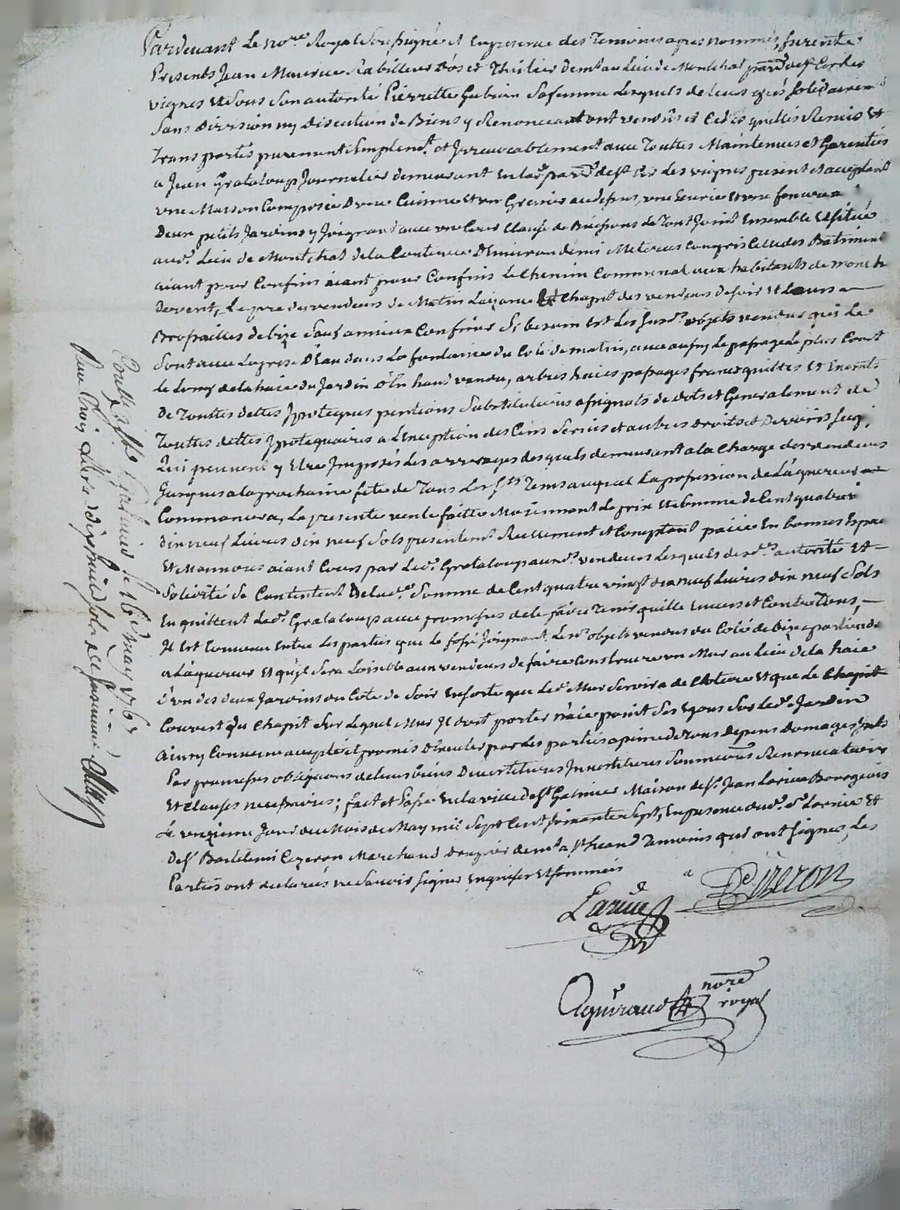 Pardevant Le no.re Royal Soussigné et En presence des Temoins apres nommés, furent
Presents Jean Maurice Rabilleur Dos et Thislier dem.t au Lieu de Montchal par.sse de S.t Cor des
vignes et Sous Son autorité Pierrette Gubian Sa femme Lesquels de Leurs grés Solidairem.t
Sans Division ny Discution de Biens y Renonceant ont vendus et Cedés quittés Remis et
Transportés purement Simplem.t et Irrevocablement avec Toutes Maintenues et Garenties
a Jean Grataloup Journalier demeurant En lad. par.sse de S.t Cir des vignes present et acceptant
une Maison Composée D'une Cuisine et un Grenier au dessus, une Ecurie et une feniere
Deux petits Jardins y Joignant avec une Cour le Tout Joint Ensemble et Situé
aud. Lieu de Montchal de la Contenue D'Environ demi Meterée Compris Celle des Batiment
aiant pour Confins aiant pour Confins le Chemin Communal aux habitants de Montchal
devent, Le pré des vendeurs de Matin Laizance et Chapit des vendeurs de Soir et Leurs
Brossailles de bize Sauf a mieux Confiner Si besoin Est Les Susd. objets vendus que
Sont avec La prise D'Eau dans La fontaine du Coté de matin, avec aussy Le passage Le plus Court
le Long de la haie du Jardin vendu, arbres haies passages francs quittes et Exempts
De Touttes dettes Ipoteques pentions Substitutions assignats de dots et Generalement de
Touttes dettes Ipotequaires a L'Exeption des Cens Servis et autres droits et Devoirs Seig.
Qui peuvent y Etre Imposés Les arrerages desquels demeurant a la Charge des vendeurs
Jusques a la prochaine fete de Tous Les S.ts Tems auquel La possession de L'aquereur
Commencera, La presente vente faitte Moienant Le prix et Somme de Cent quatre vingt
dix neuf Livres dix neuf Sols presentement Reellement et Comptant paiée En bonnes Espece
Et Monnoies aiant Cours par Led. Grataloup auxd. vendeurs Lesquels desd. autorité Et
Solidité Se Contentent De Lad. Somme de Cent quatre vingt dix neuf Livres dix neuf Sols
En quittent Led. Grataloup avec promesse de le faire Tenir quitte Envers et Contre Tous,
Il Est Convenu Entre Les parties que Le fossé Joignant Lesd. objets vendus du Coté de bize apartiendra
a L'aquereur Et qu'il Sera Loisible aux vendeurs de faire Construire un Mur au Lieu de la haie
d'un des deux Jardins au Coté de Soir En Sorte que Led. Mur Servira de Cloture Et que Le Chapit
Couvert du Chapit Sur Lequel Mur Il doit porter n'aie point Ses Egous Sur Led. Jardin
Ainsy Convenu accepté et promis D'Executer par Les parties a peine de Tous Depens Domages Interets
Par promesses obligations de leurs biens Renonciations
Et Clauses necessaires; fait et Passé En la ville de S.t Galmier Maison de S.r Jean Larue Bourgeois
Le onzieme Jour du Mois de May mil Sept Cent Soixante Sept, En presence dud. S.r Larue Et
de S.r Bartelemi Cizeron Marchand Drapier dem.t a S.t Heand Temoins qui ont Signés, Les
Parties ont declarés ne Savoir Signer Enquises Et Sommées
Larue
Cizeron
no.re
royal
Con.lé
le 16 may 1767